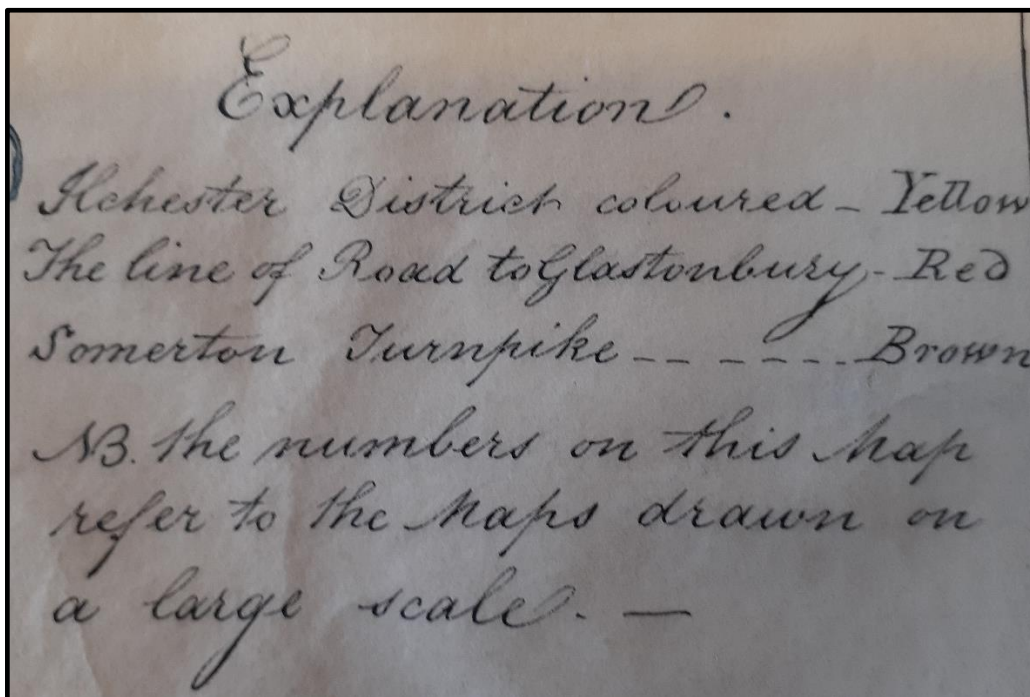 Explanation.
Ilchester District coloured - Yellow
The line of Road to Glastonbury - Red
Somerton Turnpike - - - - - - Brown
NB. the numbers on this Map
refer to the Maps drawn on
a large scale. —